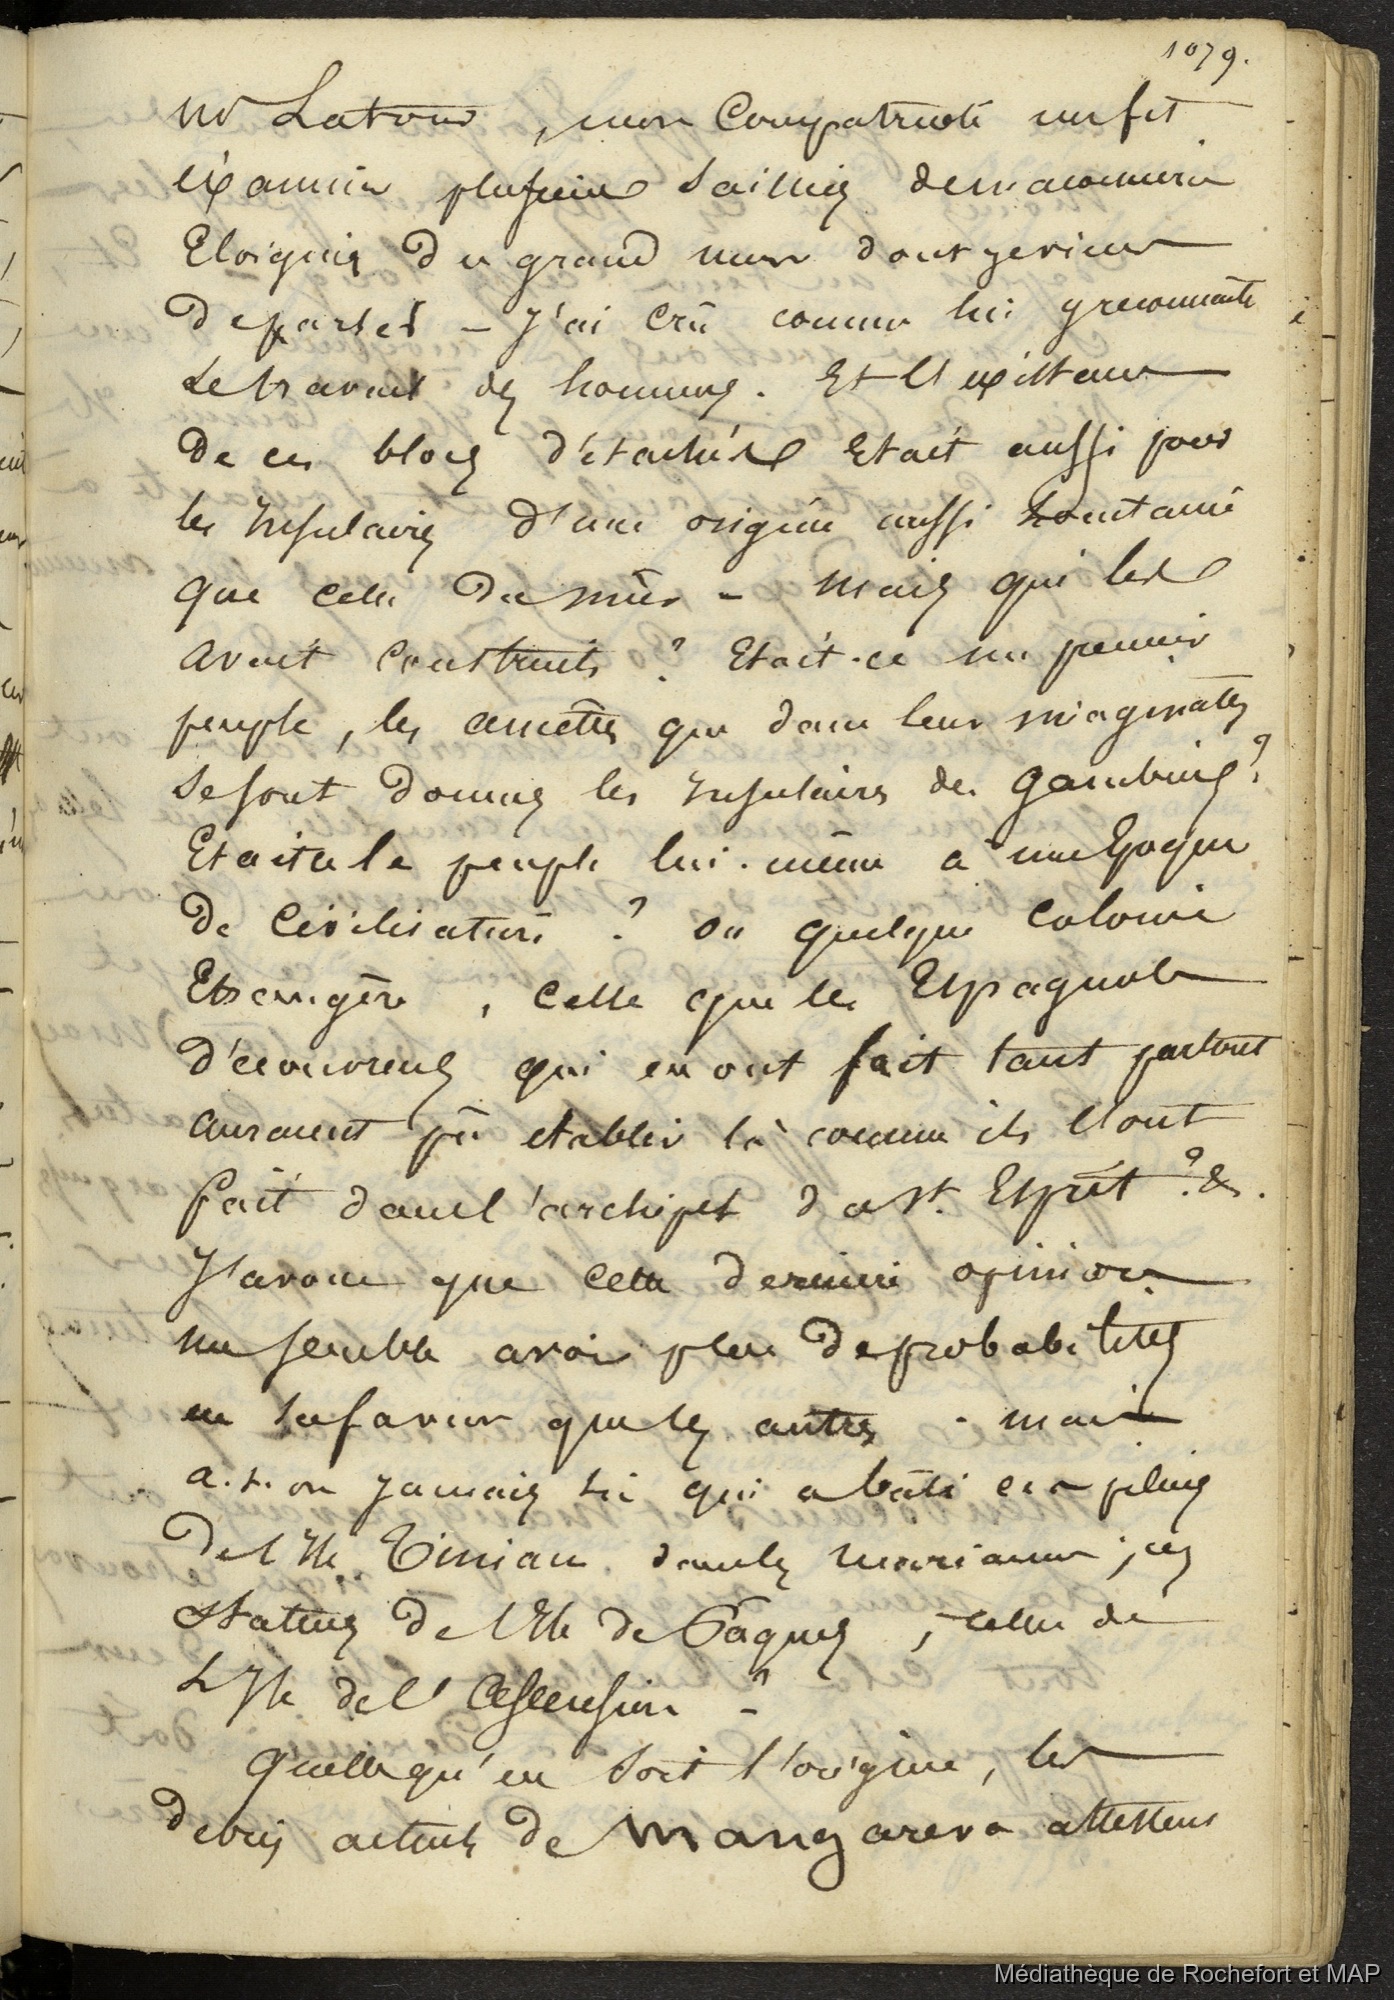 1079.
Mr Latour, mon Compatriote me fit
éxaminer plusieurs Saillies de maconnerie
Eloignées du grand mur dont je viens
de parler – J'ai crû comme lui y reconnaitre
le travail des hommes. Et l'existance
de ces blocs d'étachés Etait aussi pour
les Insulaires d'une origine aussi lointaine
que celle du mur – Mais qui les
avait Construits ? Etait-ce un premier
peuple, les ancêtres que dans leur
se sont donnés les Insulaires des Gambiers ?
Etait ce le peuple lui-même à une Epoque
de Civilisation ? ou quelque Colonie
Etrangère, celle que les Espagnols
d'écouvreurs qui en ont fait tant partout
auraient pû etablir là comme ils l'ont
fait dans l'archipel du St. Esprit ? &.
J'avoue que cette derniere opinion
me semble avoir plus de probabilités
en sa faveur que les autres . mais
a-t-on jamais su qui a bâti ces piliers
de l'Ile Tinian dans les Mariannes ; ces
Statues de l'Ile de Pâques, celles de
L'Ile de l'Ascension ?
Quelle qu'en soit l'origine, les
debris actuels de Mangareva attestent
Médiathèque de Rochefort et MAP